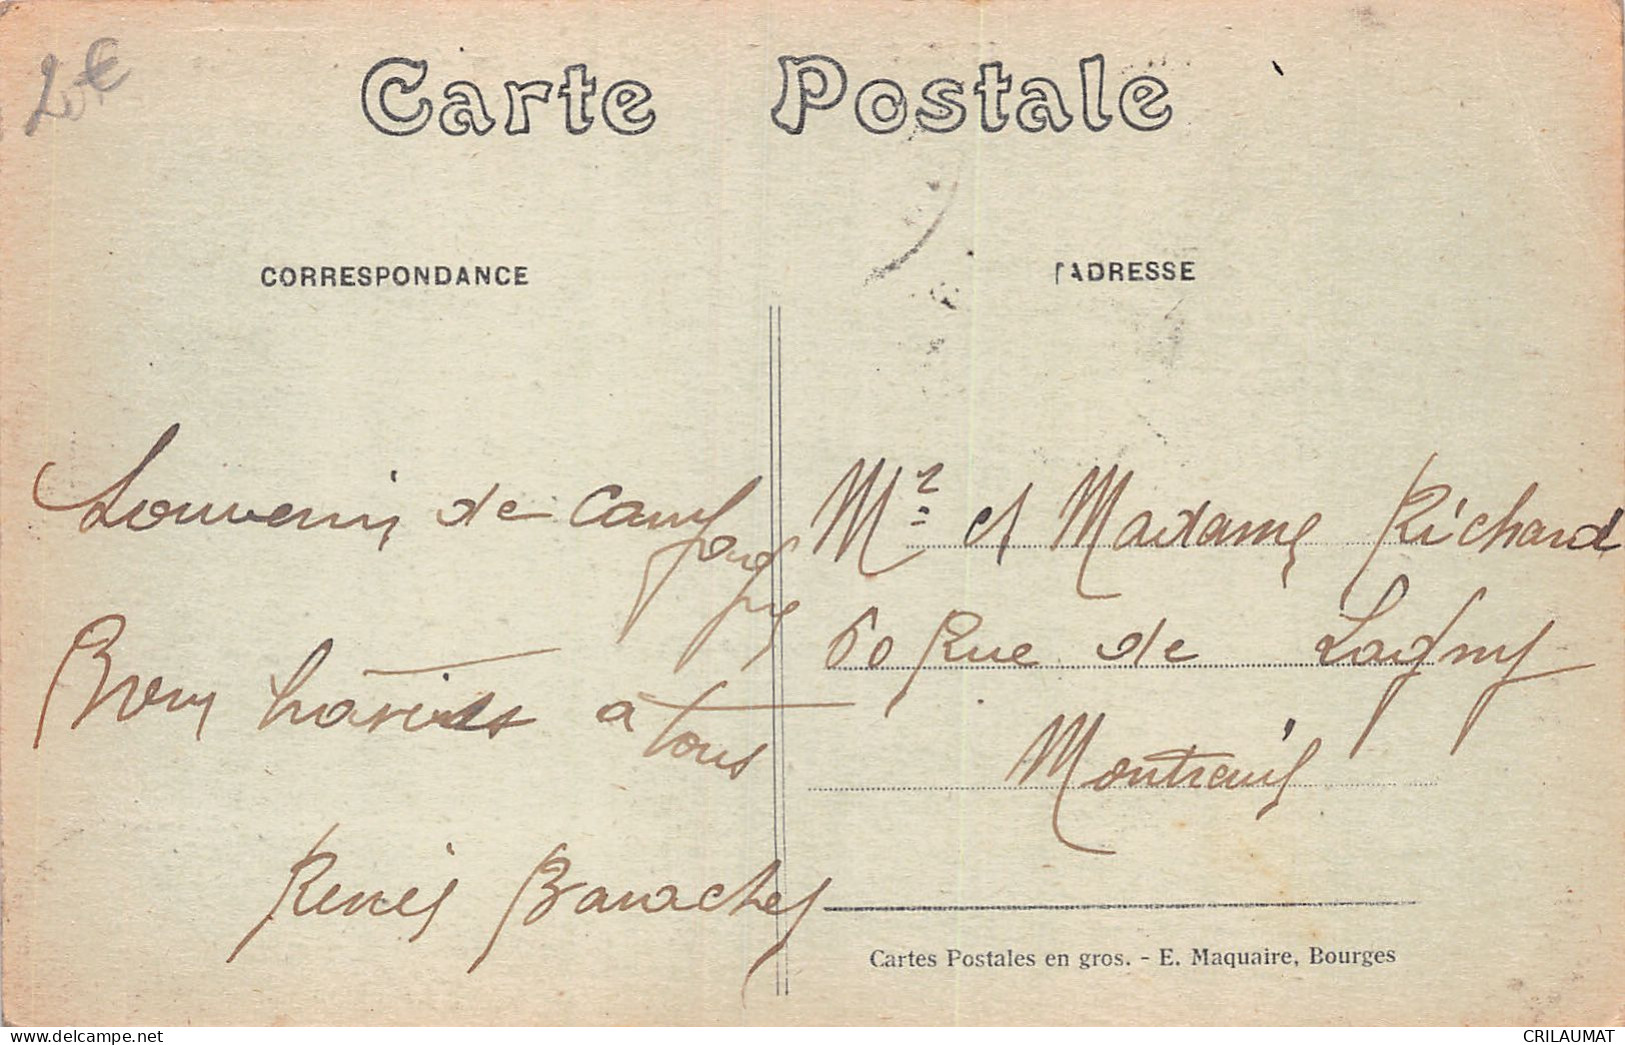 2€
Carte Postale
CORRESPONDANCE
ADRESSE
Souvenir de
Bon à tous
Renée
Mr et Madame Richard
60 Rue de Lagny
Montreuil
Cartes Postales en gros. - E. Maquaire, Bourges
www.delcampe.net
CRILAUMAT